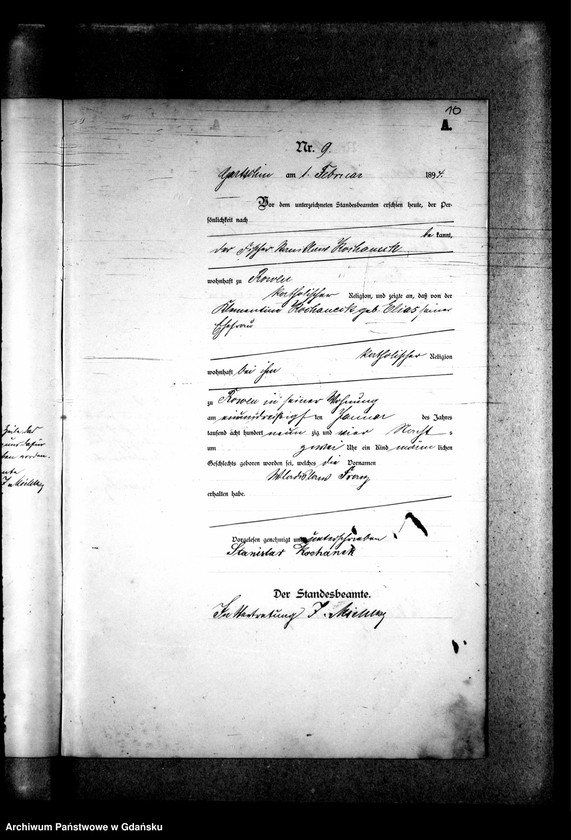 10
A.
Nr. 9.
am 1. Februar 1894.
Vor dem unterzeichneten Standesbeamten erschien heute, der Per-
sönlichkeit nach
be kannt,
der Kochaneck
wohnhaft zu Rowen
katholischer Religion, und zeigte an, daß von der
Klementine Kochaneck geb. Elias seiner
Ehefrau
katholischer Religion
wohnhaft bei ihm
zu Rowen in seiner Wohnung
am einunddreißigsten Januar des Jahres
tausend acht hundert neun zig und vier Nacht s
um zwei Uhr ein Kind männlichen
Geschlechts geboren worden sei, welches die Vornamen
Wladislaus Franz
erhalten habe.
Vorgelesen, genehmigt und unterschrieben
Stanislar Kochanek
Der Standesbeamte.
In Vertretung
Archiwum Państwowe w Gdańsku